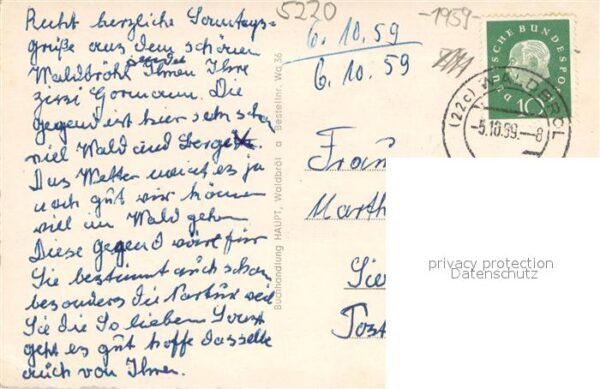 Recht herzliche Sonntags-
grüße aus dem schönen
Waldbröhl sendet Ihnen Ihre
Gormann. Die
Gegend ist hier sehr schön
viel Wald und Berge.
Das Wetter macht es ja
noch gut wir können
viel im Wald gehen
Diese Gegend wäre für
Sie bestimmt auch schön
besonders die Nartur weil
Sie die So lieben Sonst
geht es gut hoffe dasselbe
auch von Ihnen.
Buchhandlung HAUPT, Waldbröl a Bestellnr. Wa 36
5220
-1959-
6.10.59
6.10.59
DEUTSCHE BUNDESPO
10
(22c) WALDBRÖL
-5.10.59.-8
Frau
Marth
Sie
Post
privacy protection
Datenschutz